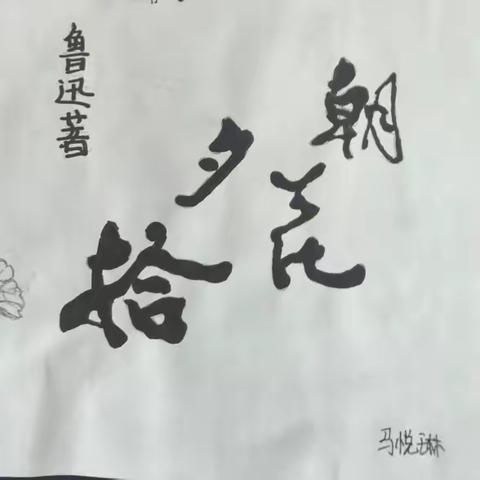 朝花
夕拾
鲁迅著
马悦琳